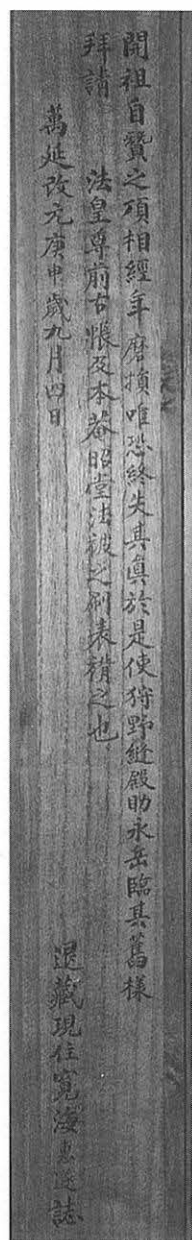 開祖自贊之頂相經年磨損唯恐終失其眞於是使狩野縫殿助永岳臨其舊樣
拜請　法皇尊前古帳及本菴昭堂法被之刷表褙之也
萬延改元庚申歲九月四日
退藏現住寬海誌